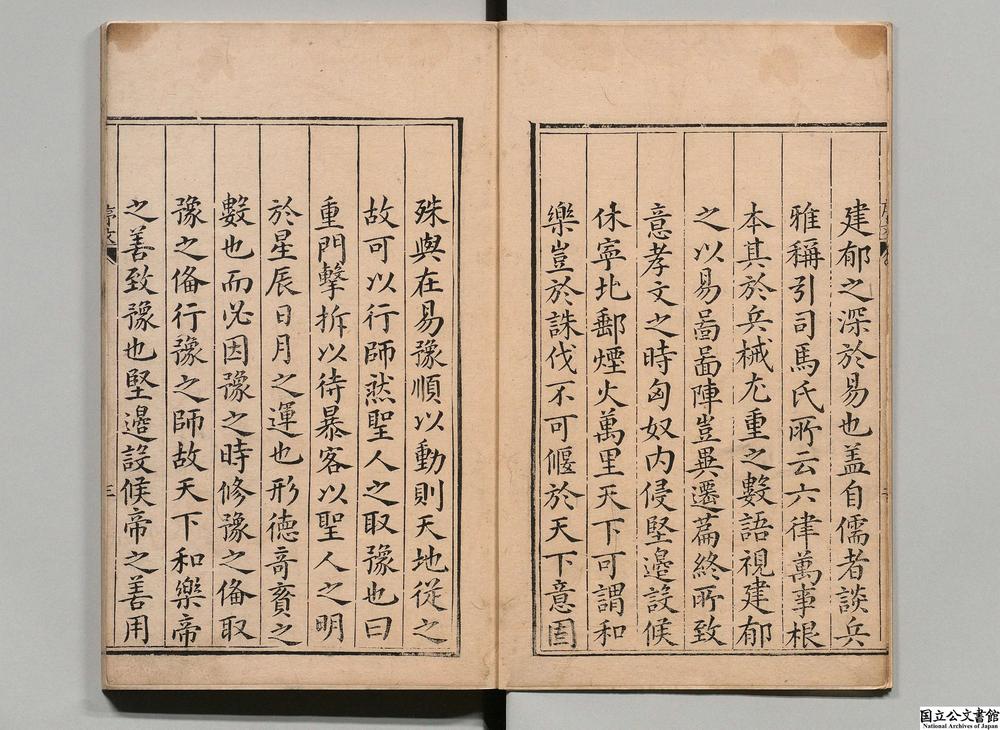 建郁之深於易也盖自儒者談兵
雅稱引司馬氏所云六律萬事根
本其於兵械尤重之數語視建郁
之以易啚啚陣豈異遷篇終所致
意孝文之時匈奴内侵堅邊設候
休寧北郵煙火萬里天下可謂和
樂豈於誅伐不可偃於天下意固
殊與在易豫順以動則天地從之
故可以行師然聖人之取豫也曰
重門擊柝以待暴客以聖人之明
於星辰日月之運也形德竒賌之
數也而必因豫之時修豫之俻取
豫之俻行豫之師故天下和樂帝
之善致豫也堅邊設候帝之善用
序文
三
国立公文書館
National Archives of Japan